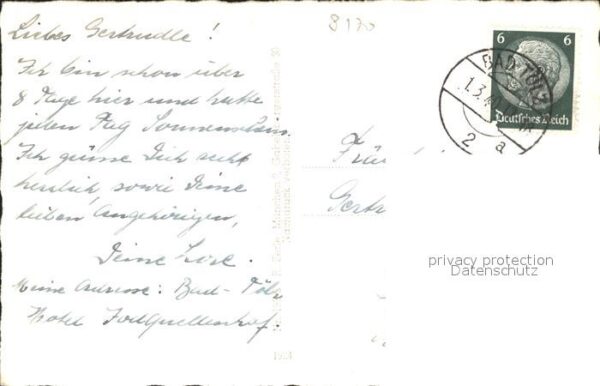 Liebes Gertrudle!
Ich bin schon über
8 Tage hier und hatte
jeden Tag Sonnenschein.
Ich grüsse Dich recht
herzlich, sowie Deine
lieben Angehörigen,
Deine Lore.
Meine Adresse: Bad-Tölz
Hotel Jodquellenhof.
8170
6 6
Deutsches Reich
BAD TÖLZ
1.3.
2 a
Gertr
privacy protection
Datenschutz